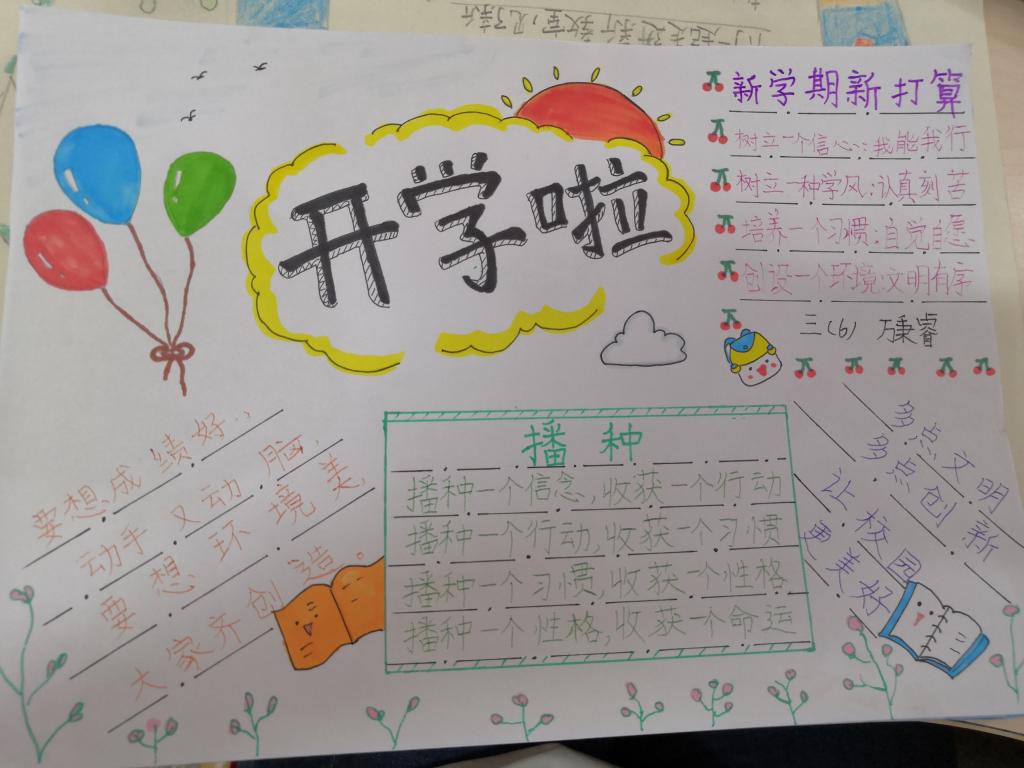 下一起走进新教室,见了新
开学啦
新学期新打算
树立一个信心:我能我行
树立一种学风:认真刻苦
培养一个习惯:自觉自愿
创设一个环境:文明有序
三(6) 万秉睿
要想成绩好,
动手又动脑,
要想环境美
大家齐创造。
播种
播种一个信念,收获一个行动
播种一个行动,收获一个习惯
播种一个习惯,收获一个性格
播种一个性格,收获一个命运
多点文明
多点创新
让校园
更美好